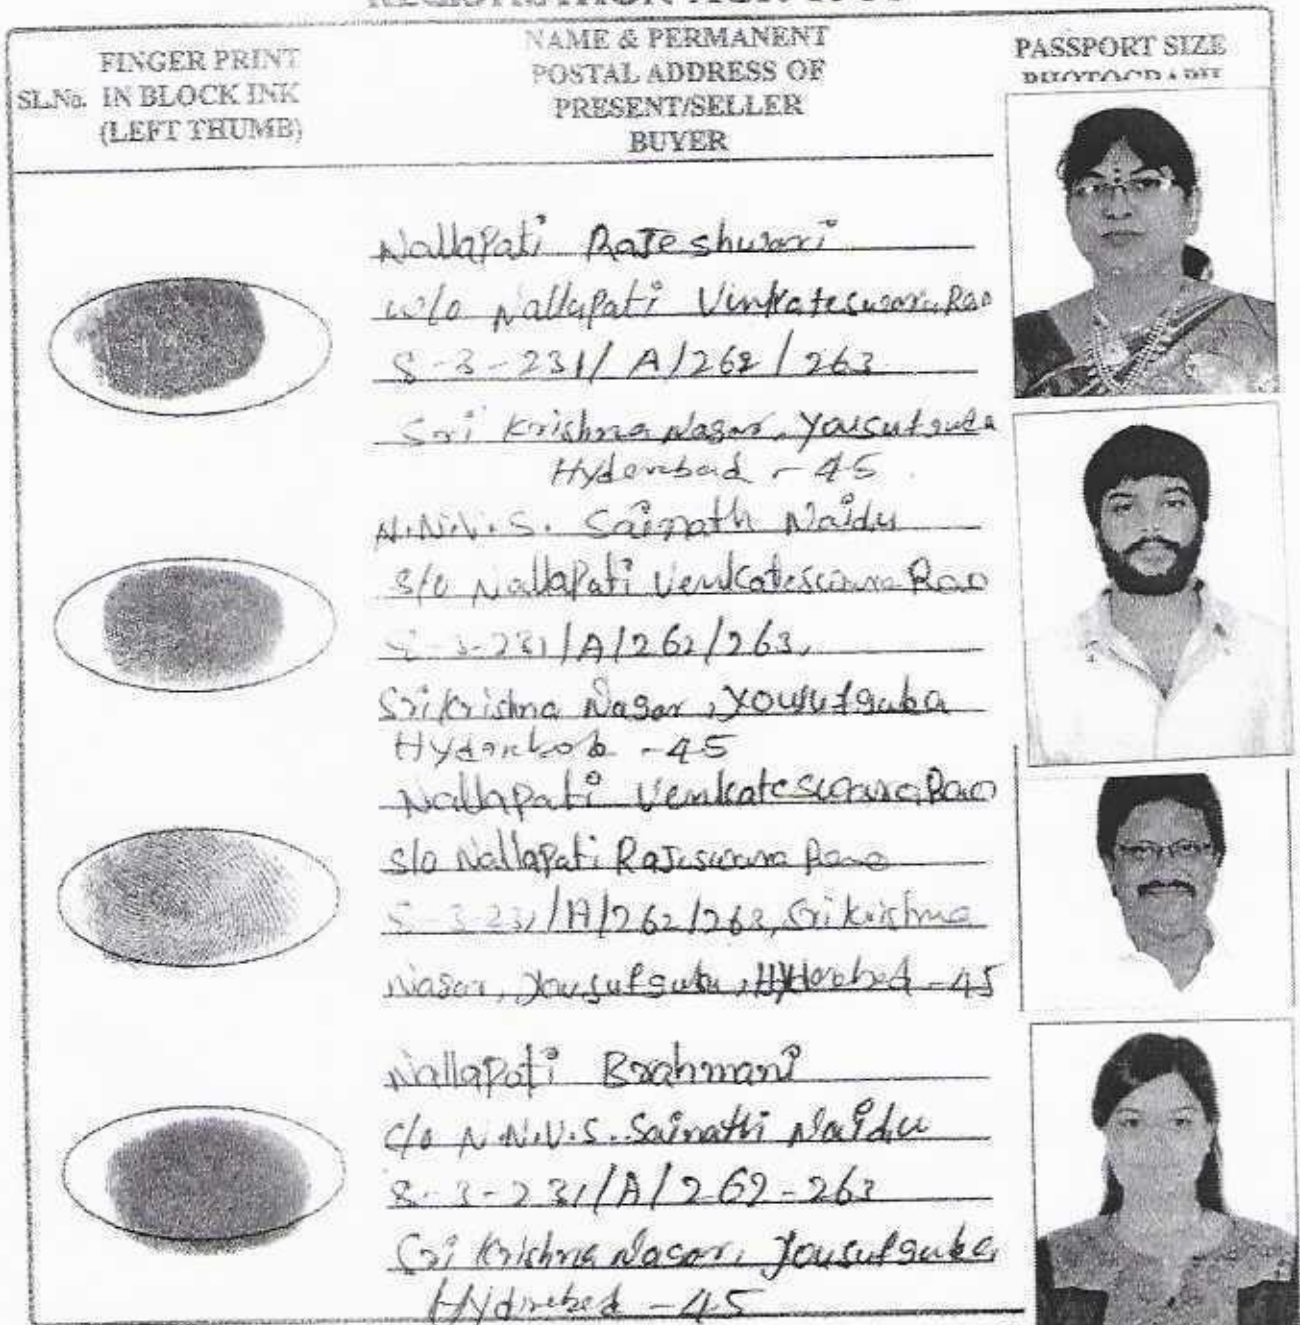 REGISTRATION ACT. 1908
SL.No.
FINGER PRINT
IN BLOCK INK
(LEFT THUMB)
NAME & PERMANENT
POSTAL ADDRESS OF
PRESENT/SELLER
BUYER
PASSPORT SIZE
PHOTOGRAPH
Nallapati Rajeshwari
w/o Nallapati Vinkateswara Rao
8-3-231/A/262/263
Sri Krishna Nagar, Yousufguda
Hyderabad - 45
N.N.V.S. Sainath Naidu
S/o Nallapati Venkateswara Rao
8-3-231/A/262/263,
Sri Krishna Nagar, Yousufguba
Hyderabab - 45
Nallapati Venkateswara Rao
S/o Nallapati Rajeswara Rao
8-3-231/A/262/263, Sri Krishna
Nagar, Yousufguba, Hyderabad - 45
Nallapati Brahmani
C/o N.N.V.S. Sainath Naidu
8-3-231/A/262-263
Sri Krishna Nagar, Yousufguba,
Hyderabad - 45